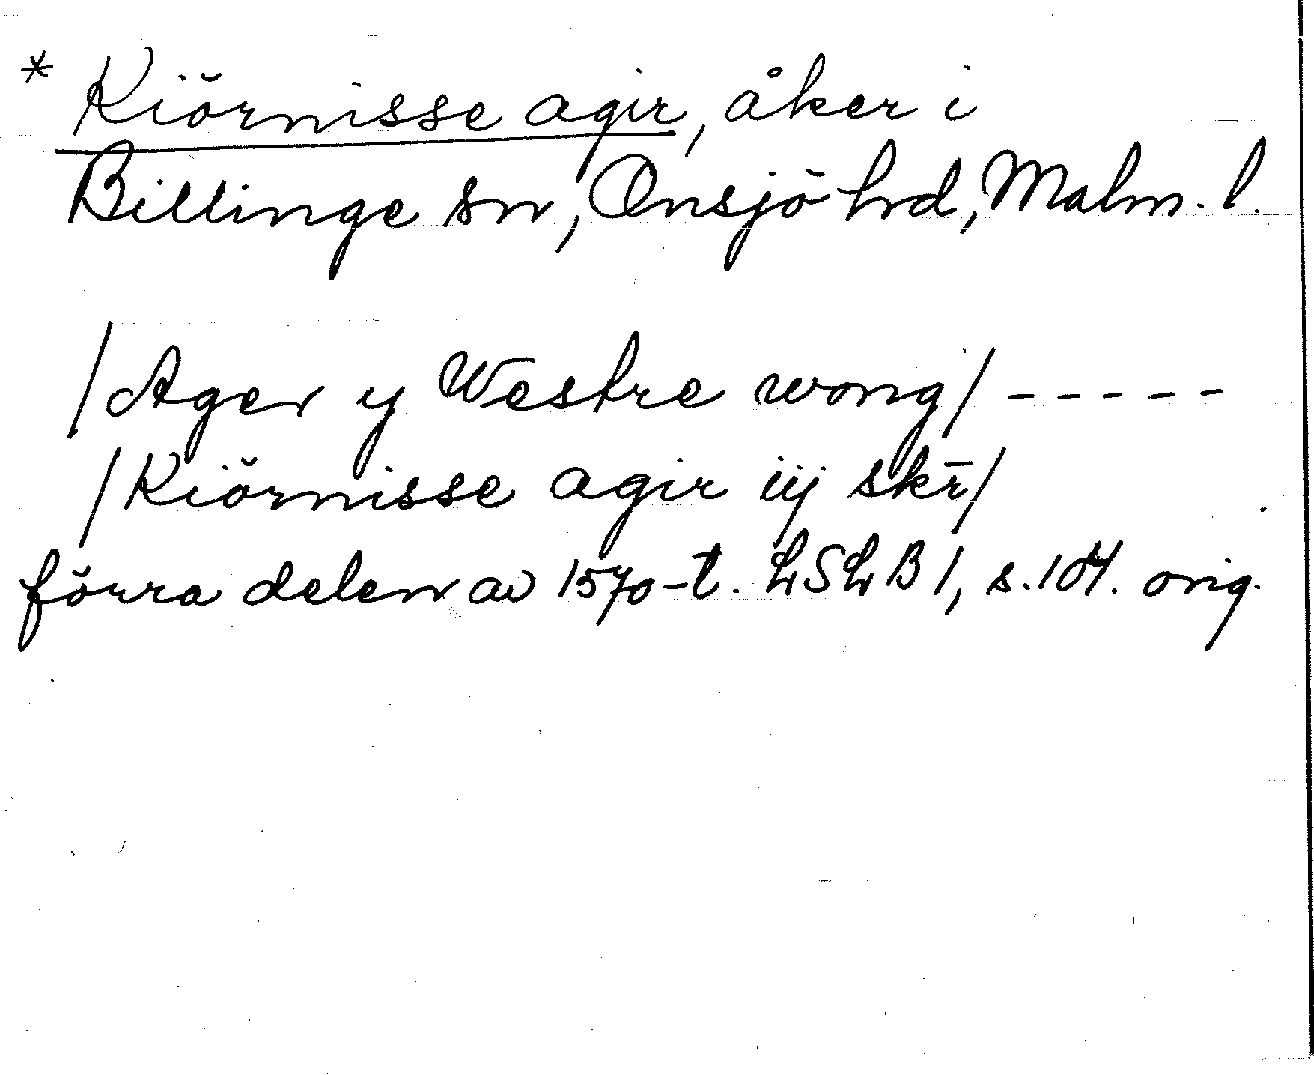 * Kiörnisse agir, åker i
Billinge sn, Onsjö hrd, Malm. l.
/Ager y Westre wong/ - - - - -
/Kiörnisse agir iij skr̄/
förra delen av 1570-t. LSLB 1, s. 104. orig.